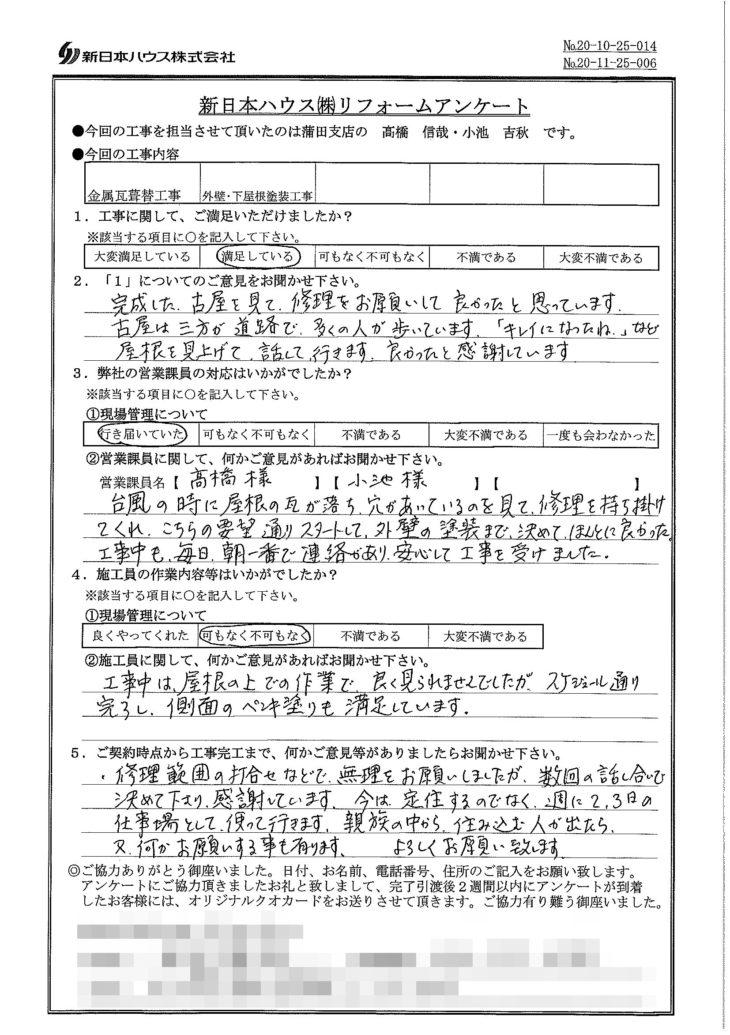 新日本ハウス株式会社
№20-10-25-014
№20-11-25-006
新日本ハウス㈱リフォームアンケート
●今回の工事を担当させて頂いたのは蒲田支店の 高橋 信哉・小池 吉秋 です。
●今回の工事内容
金属瓦葺替工事 外壁・下屋根塗装工事
1．工事に関して、ご満足いただけましたか？
※該当する項目に○を記入して下さい。
大変満足している 満足している 可もなく不可もなく 不満である 大変不満である
2．「1」についてのご意見をお聞かせ下さい。
完成した、古屋を見て、修理をお願いして良かったと思っています。
古屋は三方が道路で、多くの人が歩いています。「キレイになったね。」など
屋根を見上げて、話して行きます。良かったと感謝しています
3．弊社の営業課員の対応はいかがでしたか？
※該当する項目に○を記入して下さい。
①現場管理について
行き届いていた 可もなく不可もなく 不満である 大変不満である 一度も会わなかった
②営業課員に関して、何かご意見があればお聞かせ下さい。
営業課員名【 高橋様 】【 小池様 】【 】
台風の時に屋根の瓦が落ち、穴があいているのを見て、修理を持ち掛け
てくれ、こちらの要望通りスタートして、外壁の塗装まで、決めて、ほんとに良かった。
工事中も、毎日、朝一番で連絡があり、安心して工事を受けました。
4．施工員の作業内容等はいかがでしたか？
※該当する項目に○を記入して下さい。
①現場管理について
良くやってくれた 可もなく不可もなく 不満である 大変不満である
②施工員に関して、何かご意見があればお聞かせ下さい。
工事中は、屋根の上での作業で良く見られませんでしたが、スケジュール通り
完了し、側面のペンキ塗りも満足しています。
5．ご契約時点から工事完工まで、何かご意見等がありましたらお聞かせ下さい。
・修理範囲の打合せなどで、無理をお願いしましたが、数回の話し合いで
決めて下さり、感謝しています。今は、定住するのでなく、週に2,3日の
仕事場として、使って行きます。親族の中から、住み込む人が出たら、
又、何かお願いする事も有ります。 よろしくお願い致します
◎ご協力ありがとう御座いました。日付、お名前、電話番号、住所のご記入をお願い致します。
アンケートにご協力頂きましたお礼と致しまして、完了引渡後２週間以内にアンケートが到着
したお客様には、オリジナルクオカードをお送りさせて頂きます。ご協力有り難う御座いました。